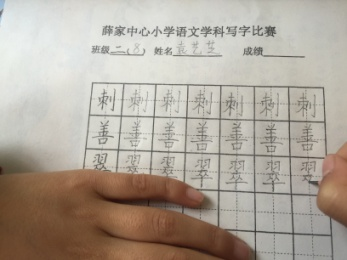 薛家中心小学语文学科写字比赛
班级二(8) 姓名袁艺芝 成绩
刺刺刺刺刺刺刺
善善善善善善善
翠翠翠翠翠翠翠